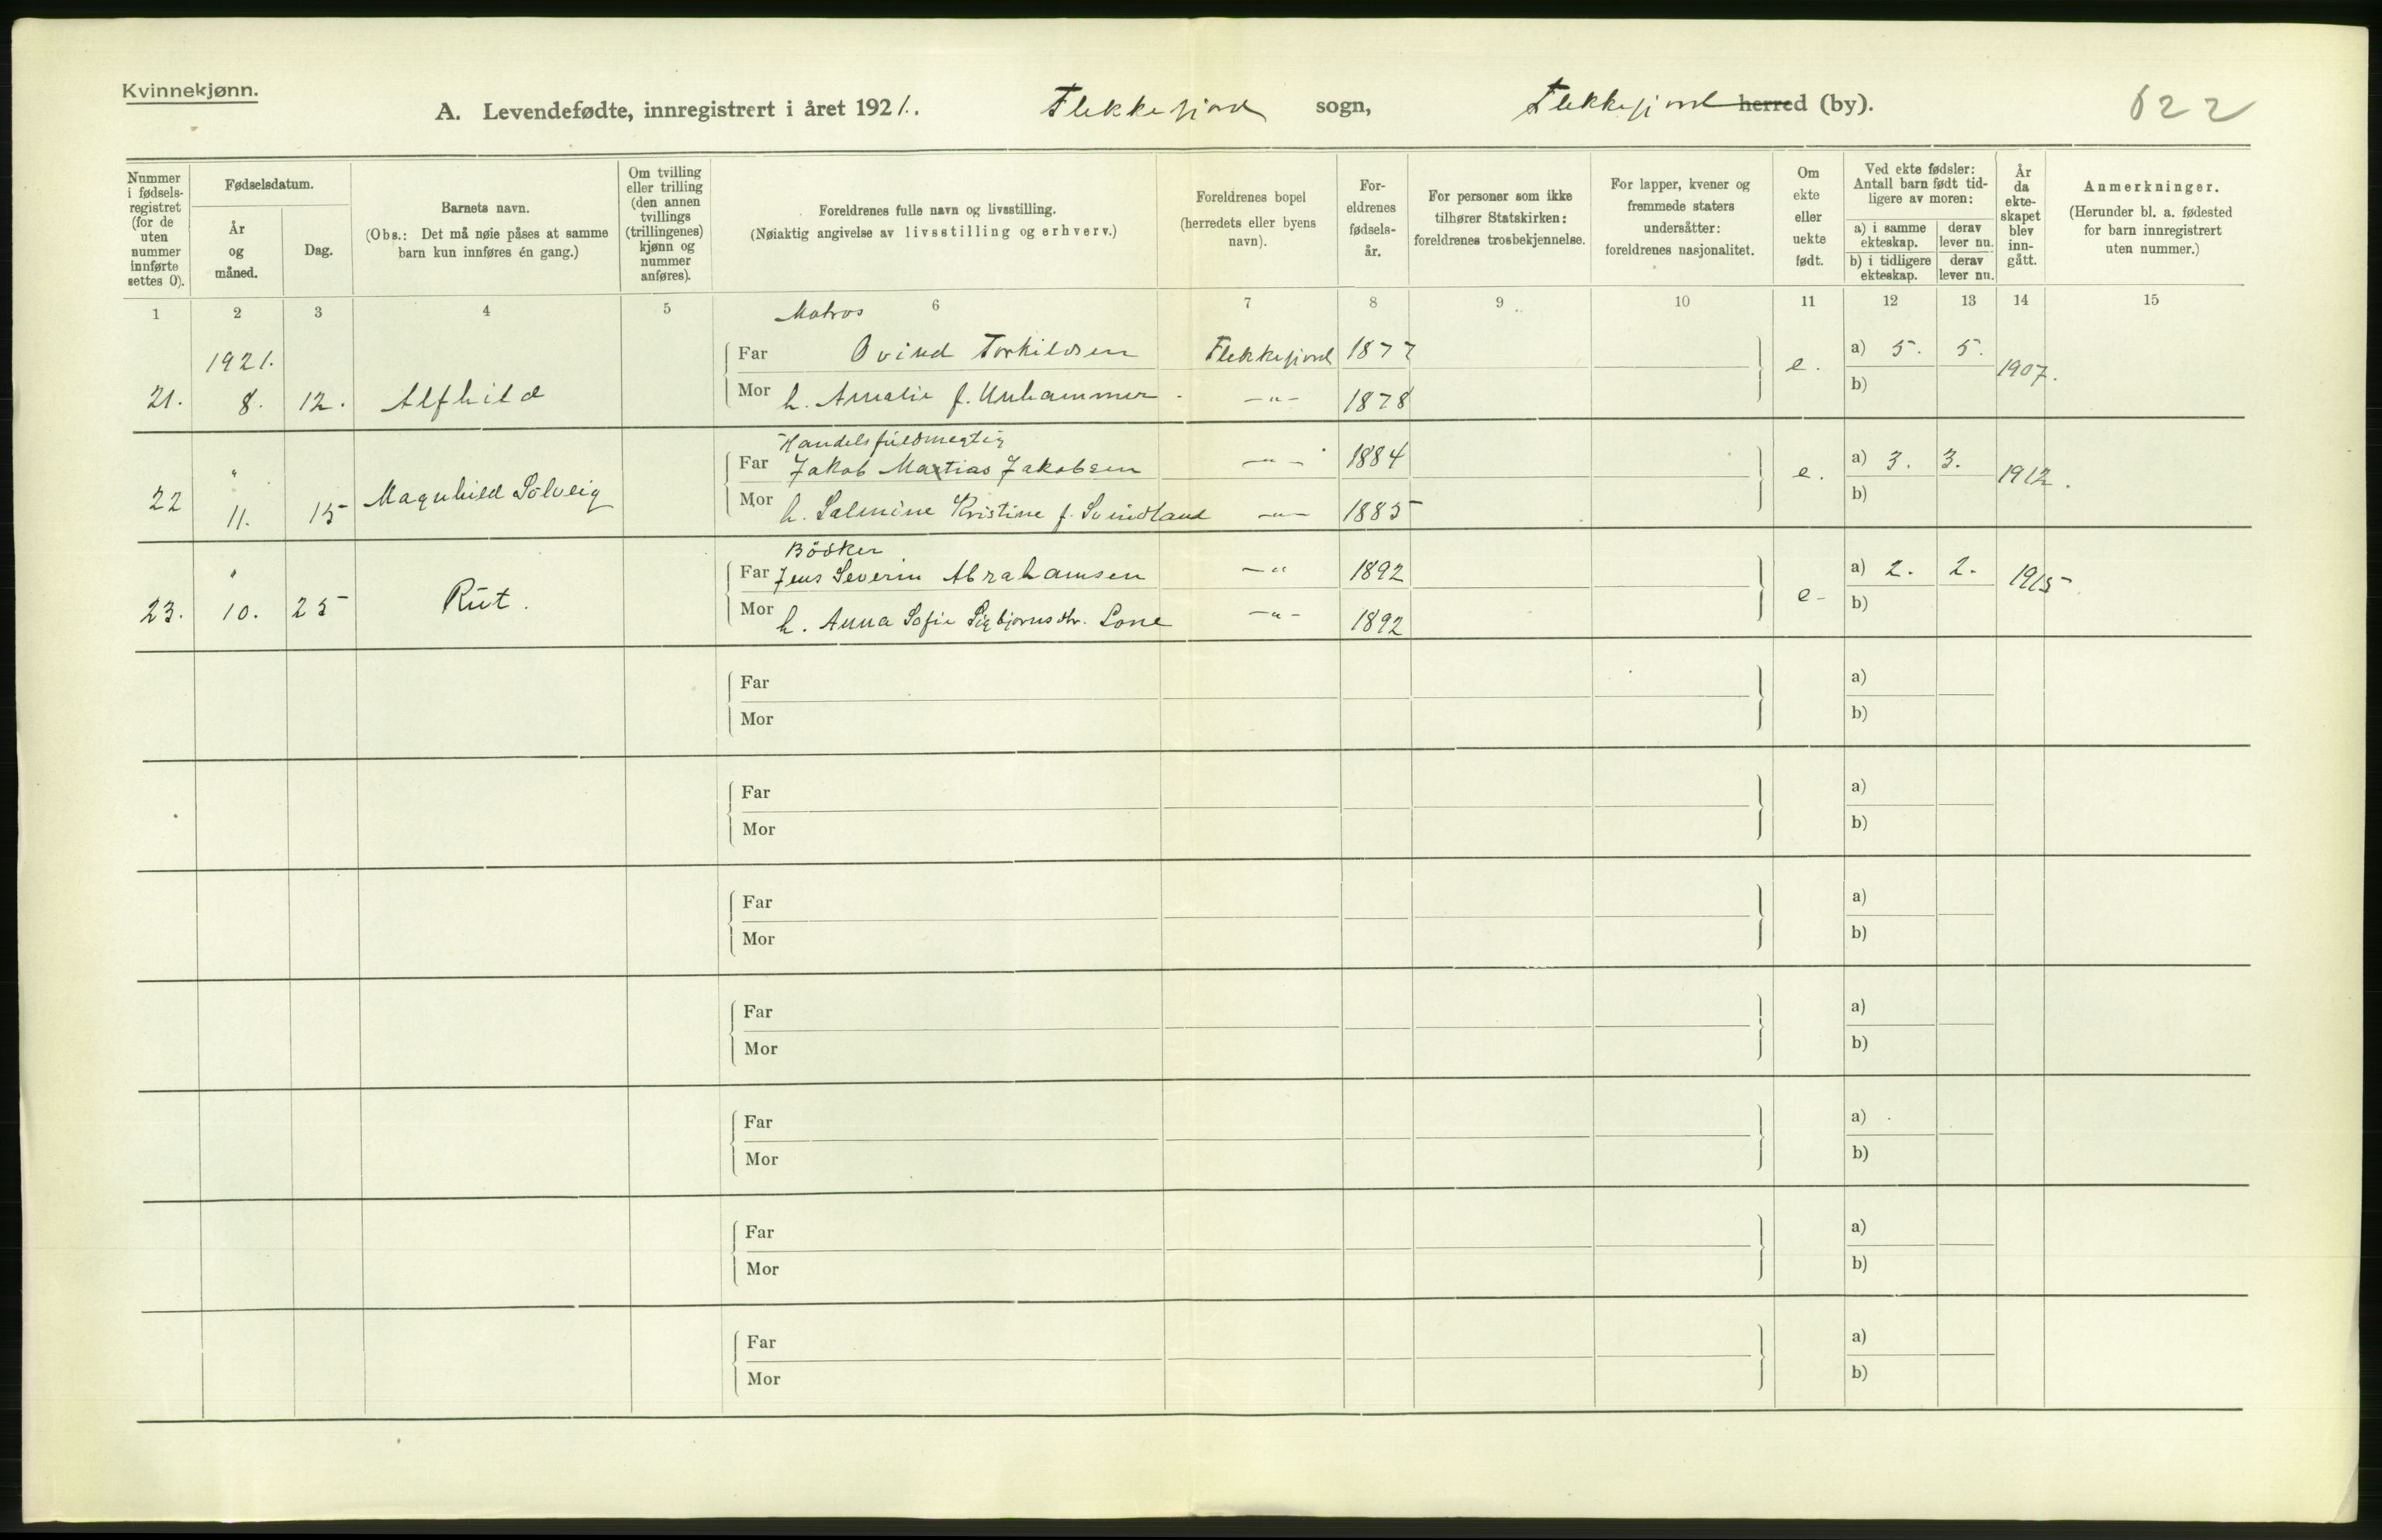 Kvinnekjønn.
A. Levendefødte, innregistrert i året 1921. Flekkefjord sogn, Flekkefjord herred (by). 622
Nummer i fødsels-registret (for de uten nummer innførte settes 0).
Fødselsdatum.
År og måned.
Dag.
Barnets navn.
(Obs.: Det må nøie påses at samme barn kun innføres én gang.)
Om tvilling eller trilling (den annen tvillings (trillingenes) kjønn og nummer anføres).
Foreldrenes fulle navn og livsstilling.
(Nøiaktig angivelse av livsstilling og erhverv.)
Foreldrenes bopel
(herredets eller byens navn).
For-eldrenes fødsels-år.
For personer som ikke tilhører Statskirken: foreldrenes trosbekjennelse.
For lapper, kvener og fremmede staters undersåtter: foreldrenes nasjonalitet.
Om ekte eller uekte født.
Ved ekte fødsler: Antall barn født tid-ligere av moren:
a) i samme ekteskap.
derav lever nu.
b) i tidligere ekteskap.
derav lever nu.
År da ekte-skapet blev inn-gått.
Anmerkninger.
(Herunder bl. a. fødested for barn innregistrert uten nummer.)
1 2 3 4 5 6 7 8 9 10 11 12 13 14 15
Matros
1921. Far Ovind Torkildsen Flekkefjord 1877 e. a) 5. 5. 1907.
21. 8. 12. Alfhild Mor h. Amalie f. Unhammer -"- 1878 b)
Handelsfuldmegtig
" Far Jakob Matias Jakobsen -"- 1884 e. a) 3. 3. 1912.
22 11. 15 Magnhild Sölveig Mor h. Salmine Kristine f. Svindland -"- 1885 b)
Bödker
" Far Jens Severin Abrahamsen -"- 1892 e- a) 2. 2. 1915
23. 10. 25 Rut. Mor h. Anna Sofie Sigbjørnsdtr. Lone -"- 1892 b)
Far a)
Mor b)
Far a)
Mor b)
Far a)
Mor b)
Far a)
Mor b)
Far a)
Mor b)
Far a)
Mor b)
Far a)
Mor b)